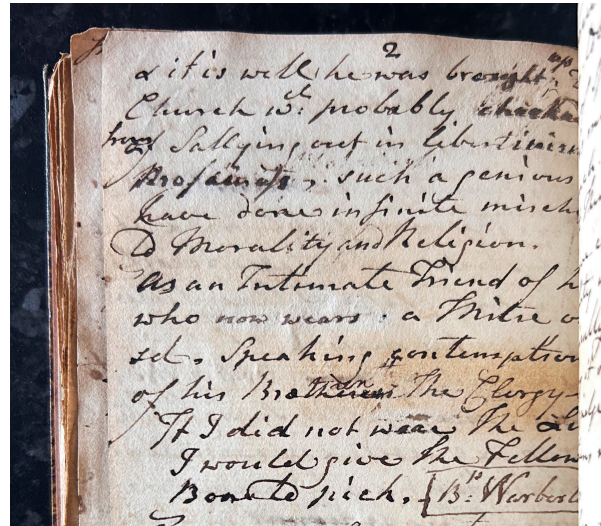 2
& it is well he was brought up
Church wch probably checked
from Sallying out in libertinism
Profaness, such a genious
have done infinite misch
to Morality and Religion.
As an Intimate Friend of h
who now wears a Mitre o
sd. Speaking contemptuou
of his Bretheren The Clergy
If I did not wear The
I would give the Fellow
Bone to pick. [Bp Warburt